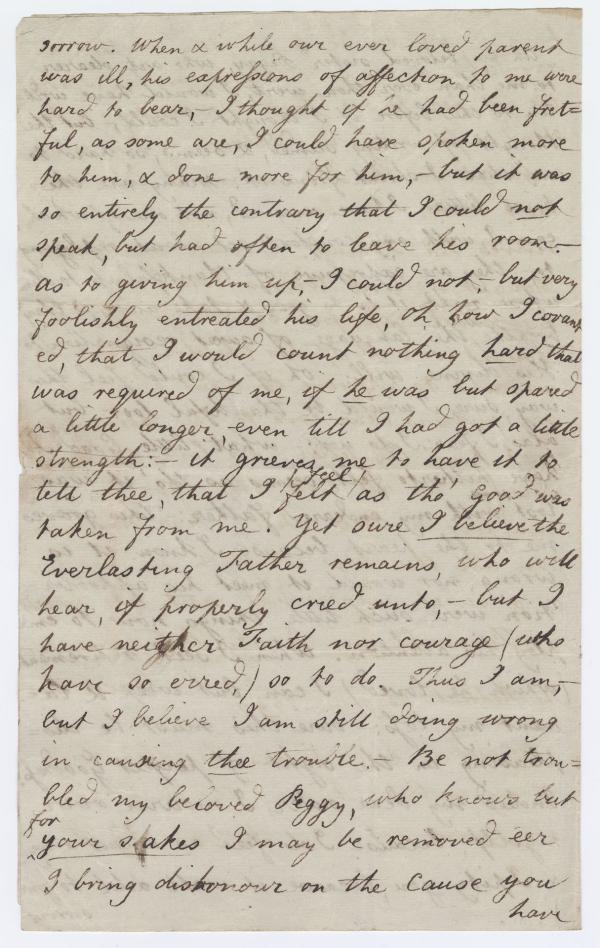 sorrow. When & while our ever loved parent
was ill, his expressions of affection to me were
hard to bear, – I thought if he had been fret=
ful, as some are, I could have spoken more
to him, & done more for him, – but it was
so entirely the contrary that I could not
speak, but had often to leave his room. –
as to giving him up, – I could not, – but very
foolishly entreated his life, oh how I covant
ed, that I would count nothing hard that
was required of me, if he was but spared
a little longer, even till I had got a little
strength: – it grieves me to have it to
(feel)
tell thee, that I felt as tho' Good was
taken from me. Yet sure I believe the
Everlasting Father remains, who will
hear, if properly cried unto, – but I
have neither Faith nor courage (who
have so erred,) so to do. Thus I am, –
but I believe I am still doing wrong
in causing thee trouble. – Be not trou=
bled my beloved Peggy, who knows but
for
your sakes I may be removed eer
I bring dishonour on the cause you
have